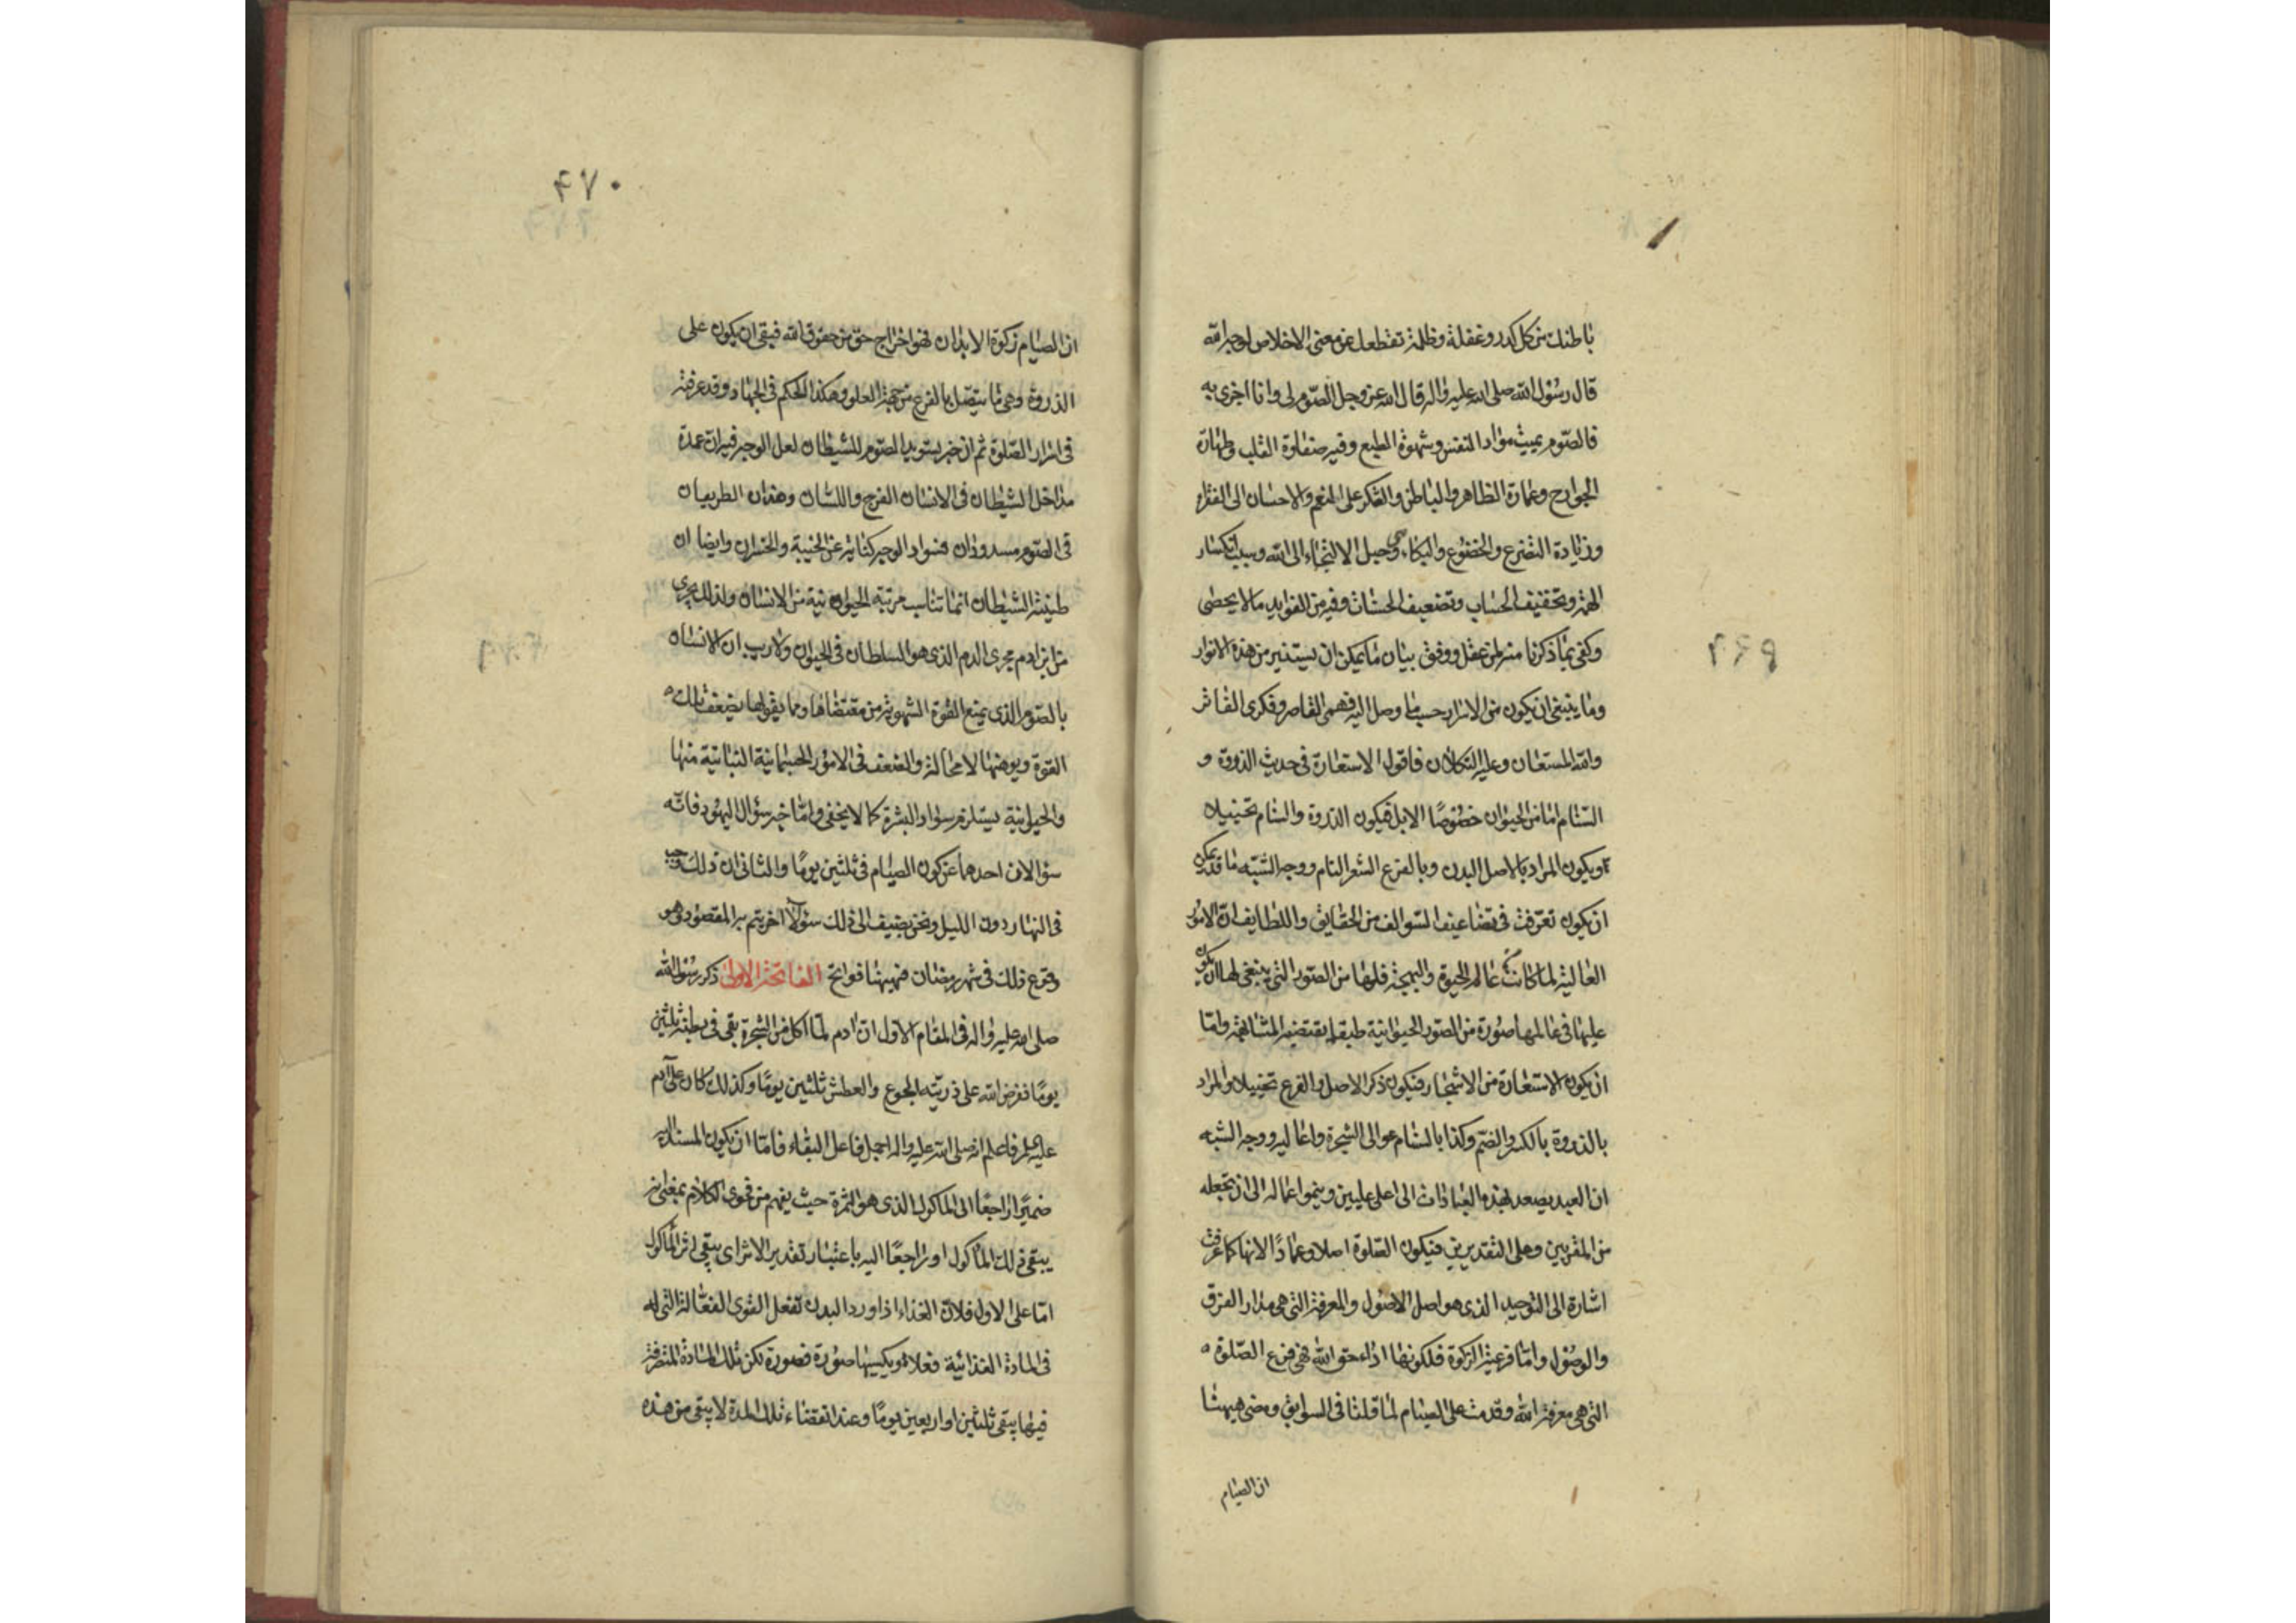 باطنك من كل كدر وغفلة وظلمة تقطعك عن معنى الاخلاص لوجه الله
قال رسول الله صلى الله عليه واله قال الله عز وجل الصوم لى وانا اجزى به
فالصوم يميت مواد النفس وشهوة الطبع وفيه صفاوة القلب وطهارة
الجوارح وعمارة الظاهر والباطن والشكر على النعم والاحسان الى الفقراء
وزيادة التضرع والخضوع والبكاء وحبل الالتجاء الى الله وسبب انكسار
الهمة وتخفيف الحساب وتضعيف الحسنات وفيه من الفوايد ما لا يحصى
وكفى بما ذكرنا منه لمن عقل ووفق بيان ما يمكن ان يستنير من هذه الانوار
وما ينبغى ان يكون من الاسرار حسب ما وصل اليه فهمى القاصر وفكرى الفاتر
والله المستعان وعليه التكلان فاقول الاستعارة فى حديث الذروة و
السنام اما من الحيوان خصوصًا الابل فيكون الذروة والسنام تخييلا
ويكون المراد بالاصل البدن وبالفرع الشعر النام ووجه الشبه ما قد يمكن
ان يكون تعرفت فى تضاعيف السوالف من الحقايق واللطايف ان الامور
العالية لما كانت عالم الحيوة والبهجة فلها من الصور التى ينبغى لها ان يكون
عليها فى عالمها صورة من الصور الحيوانية طبق ما يقتضيه المشابهة واما
ان يكون الاستعارة من الاشجار فيكون ذكر الاصل والفرع تخييلا والمراد
بالذروة بالكسر والضم وكذا بالسنام عوالى الشجرة واعاليه ووجه الشبه
ان العبد يصعد بهذه العبادات الى اعلى عليين وينموا عماله الى ان تجعله
من المقربين وعلى التقديرين فيكون الصلوة اصلا وعمادًا لانها كما عرفت
اشارة الى التوحيد الذى هو اصل الاصول والمعرفة التى هى مدار الفرق
والوصول واما فرعية الزكوة فلكونها اداء حق الله فهى فرع الصلوة
التى هى معرفة الله وقدمت على الصيام لما قلنا فى السوابق ومضى هيهنا
ان الصيام
٤٧٠
ان الصيام زكوة الابدان فهو اخراج حق من حقوق الله فبقى ان يكون على
الذروة وهى ما يتصل بالفرع من جهة العلو وهكذا الحكم فى الجهاد وقد عرفته
فى اسرار الصلوة ثم ان خبر تسويد الصوم للشيطان لعل الوجه فيه ان عمدة
مداخل الشيطان فى الانسان الفرج واللسان وهذان الطريقان
فى الصوم مسدودان فسواد الوجه كناية عن الخيبة والخسران وايضا ان
طينة الشيطان انما تناسب مرتبة الحيوانية من الانسان ولذلك يجرى
من ابن ادم مجرى الدم الذى هو السلطان فى الحيوان ولا ريب ان الانسان
بالصوم الذى يمنع القوة الشهوية من مقتضاها ومما يقويها يضعف تلك
القوة ويوهنها لا محالة والضعف فى الامور الجسمانية النباتية منها
والحيوانية يستلزم سواد البشرة كما لا يخفى واما خبر سؤال اليهود فانه
سؤالان احدهما عن كون الصيام فى ثلثين يومًا والثانى ان ذلك وجب
فى النهار دون الليل ونحن نضيف الى ذلك سؤالًا اخر يتم به المقصود وهو
وقوع ذلك فى شهر رمضان فهيهنا فواتح الفاتحة الاولى ذكر رسول الله
صلى الله عليه واله فى المقام الاول ان ادم لما اكل من الشجرة بقى فى بطنه ثلثين
يومًا ففرض الله على ذريته الجوع والعطش ثلثين يومًا وكذلك كان على آدم
عليه السلم فاعلم انه صلى الله عليه واله اجمل فاعل البقاء فاما ان يكون المسند اليه
ضميرًا راجعًا الى الماكول الذى هو الثمرة حيث يفهم من فحوى الكلام بمعنى انه
يبقى ذلك الماكول او راجعًا اليه باعتبار تقدير الاثر اى يبقى اثر الماكول
اما على الاول فلان الغذاء اذا ورد البدن تفعل القوى الفعالة التى له
فى المادة الغذائية فعلا ويكسيها صورة فصورة لكن تلك المادة المتصرفة
فيها يبقى ثلثين او اربعين يومًا وعند انقضاء تلك المدة لا يبقى من هذه